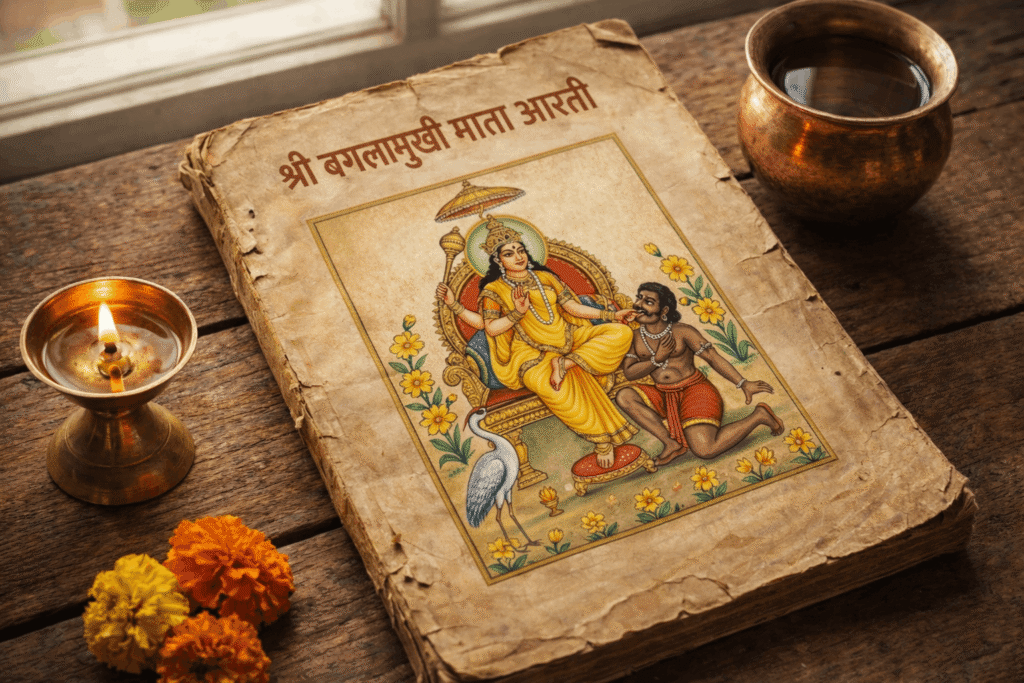 श्री बगलामुखी माता आरती